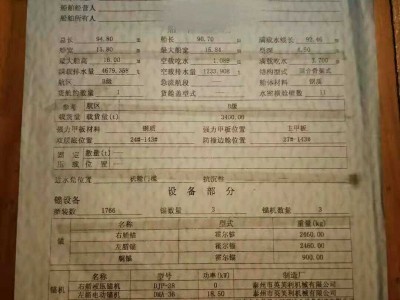 船舶经营人
船舶所有人
总长 94.80 船长 90.70 满载水线长 93.40
船宽 13.80 最大船宽 15.84 型深
最大船高 18.00 空载吃水 1.088 满载吃水 3.700
满载排水量 4679.368 空载排水量 1223.908 结构型式
航区 B级 急流航段 船体材料 钢质
货舱数量 1 货舱盖型式 水密横舱壁数
参考 航区 B级
载货量 载货量(t) 3400.00
强力甲板材料 钢质 强力甲板位置 主甲板
双层底位置 24#-143# 防撞边舱位置 27#-143#
固定 数量(t)
压载 位置
抗沉性
设备部分
锚设备
舾装数 1786 锚数量 3 锚机数量 3
锚 名称 型式 重量(kg)
右艏锚 霍尔锚 2460.00
左艏锚 霍尔锚 2460.00
艉锚 霍尔锚 900.00
锚机 名称 型号 功率(kW) 制造厂
右艏液压锚机 0 泰州市英芙利机械有限公司
左艏电动锚机 18.50 泰州市英芙利机械有限公司